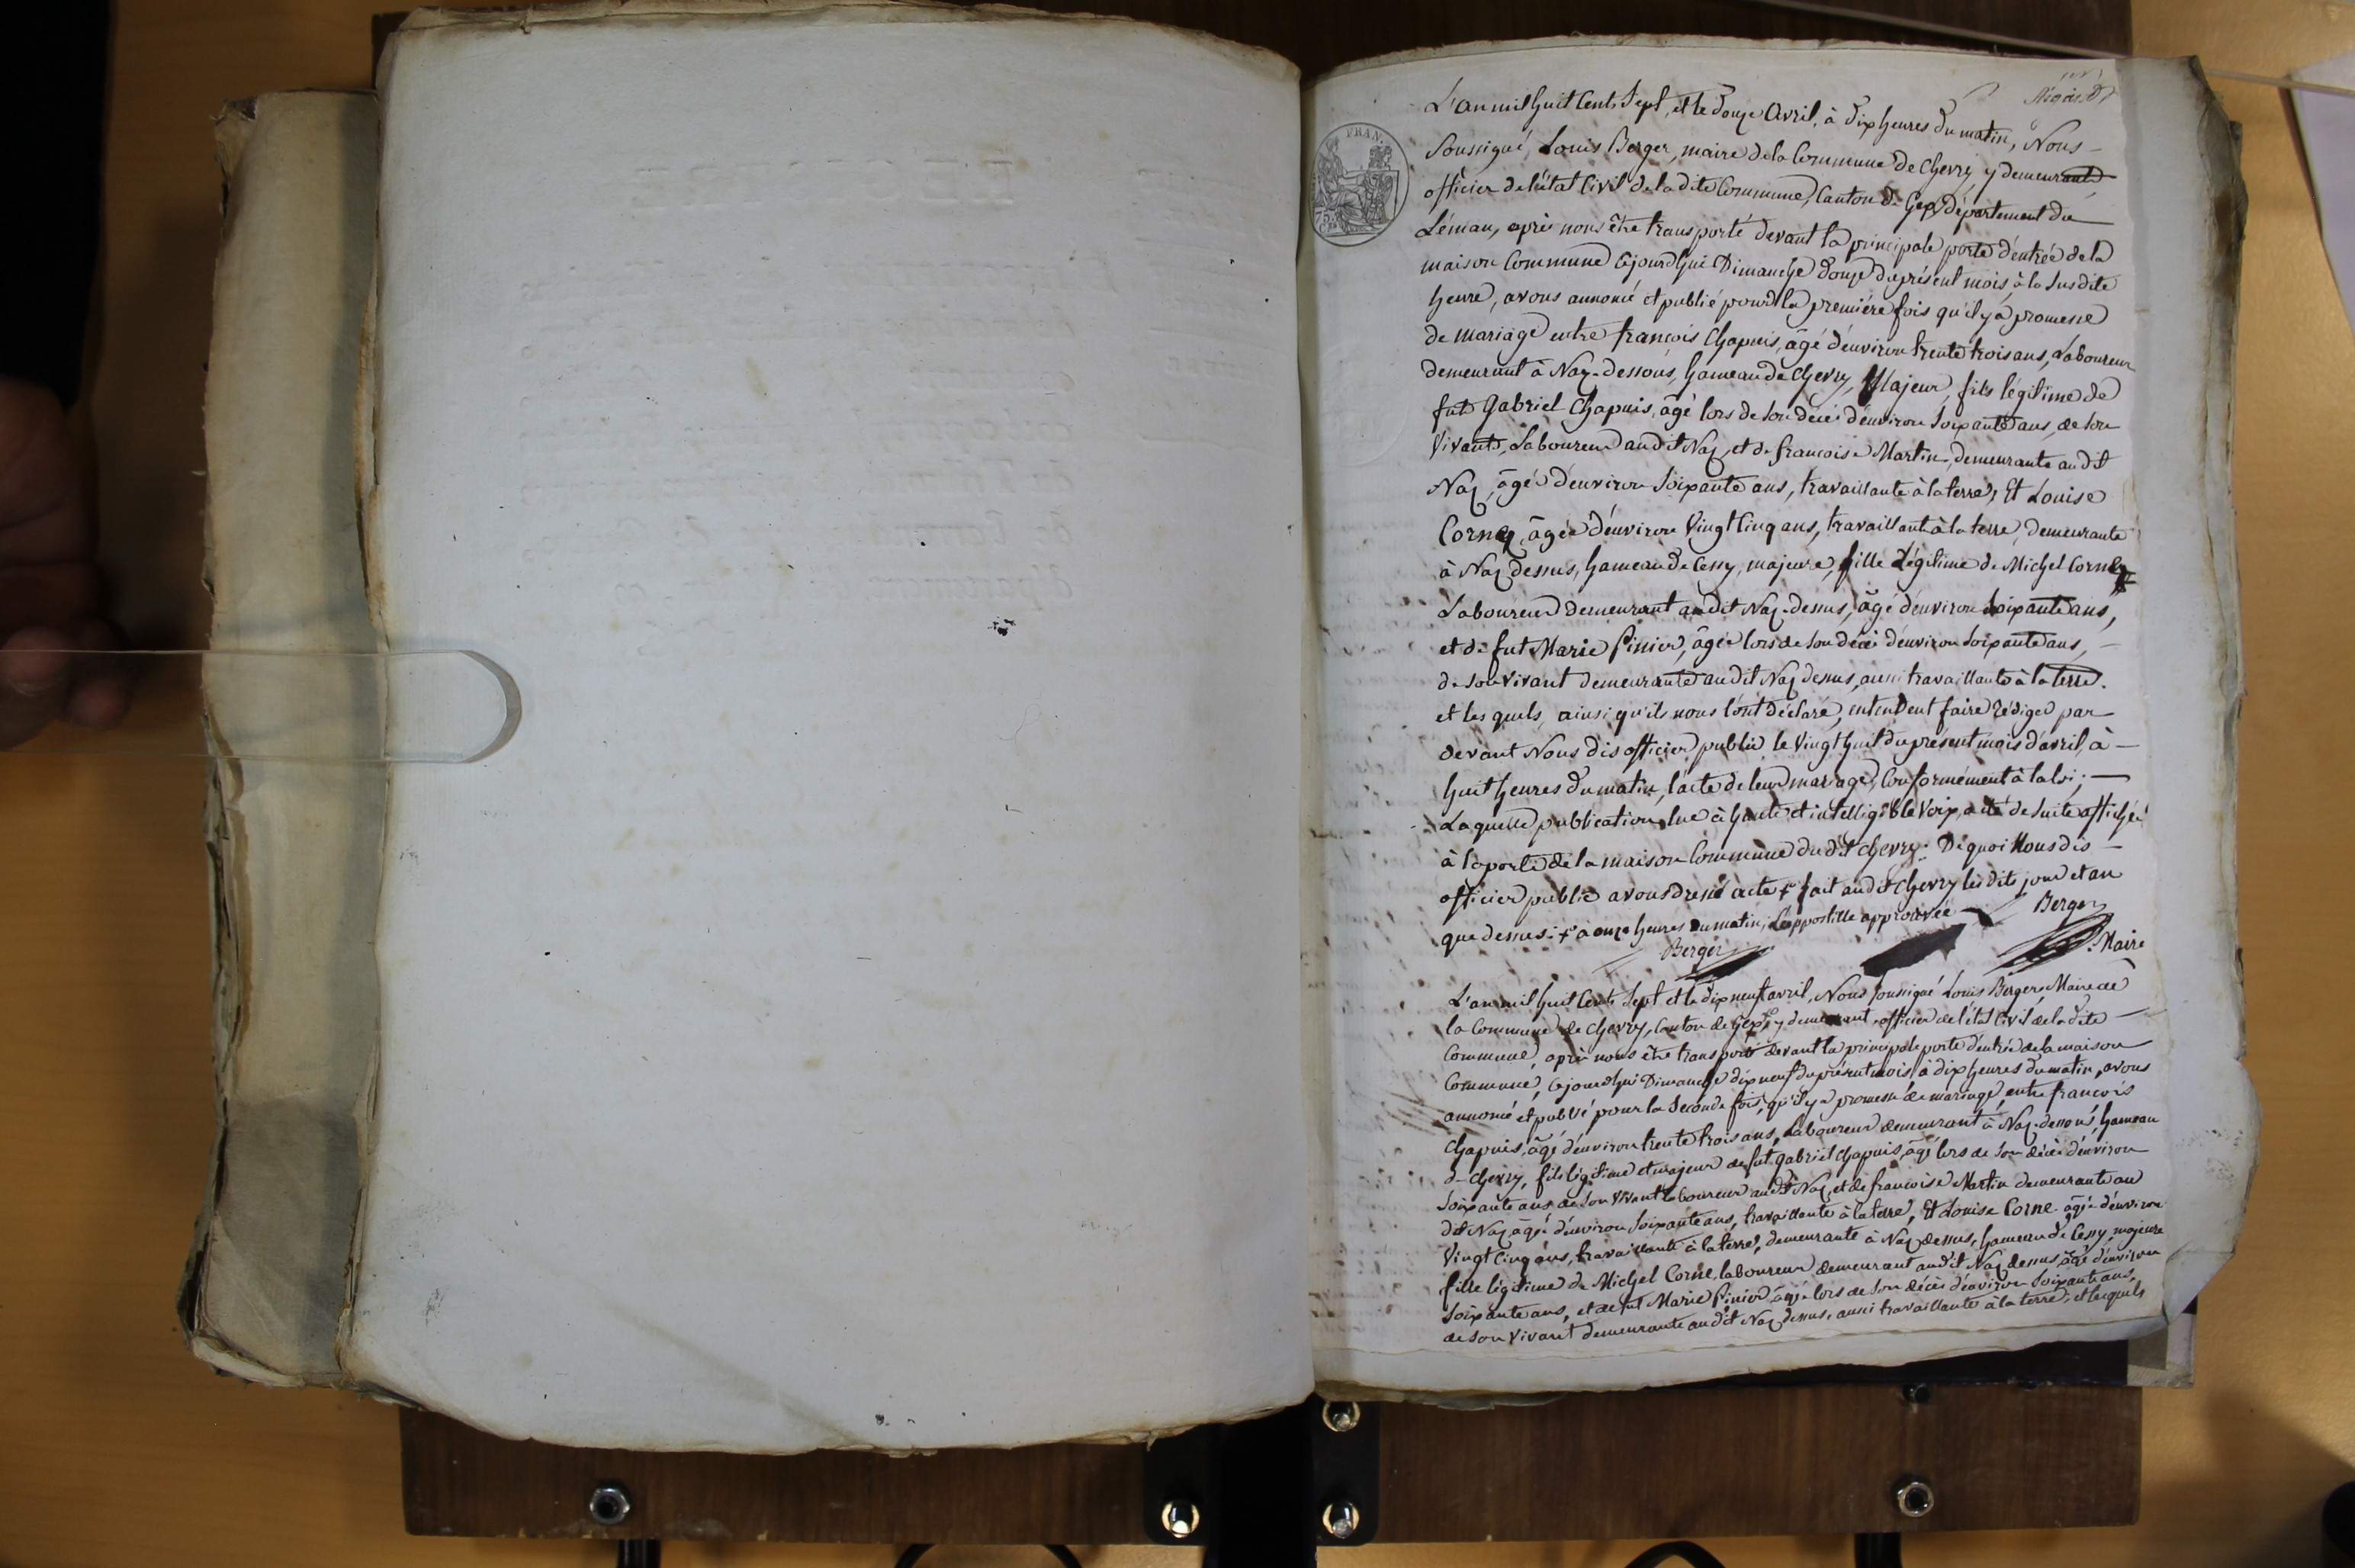 L'an mil huit Cents Sept, et le Douze Avril, à Dix heures Du matin, Nous
Soussigné, Louis Berger, maire de la Commune De Chevry, y demeurant
officier de l'état Civil de la dite Commune, Canton de Gex, département du
FRAN.
75
Léman, après nous être transporté devant la principale porte d'entrée de la
maison Commune Cejourdhui Dimanche Douze du présent mois, à la susdite
heure, avons annoncé et publié pour la première fois qu'il y a promesse
de mariage entre françois Chapuis, âgé d'environ trente trois ans, Laboureur
demeurant à Naz-dessous, hameau de Chevry, Majeur, fils légitime de
fut Gabriel Chapuis, âgé lors de son décès d'environ Soixante ans, de son
Vivant, Laboureur audit Naz, et de francoise Martin, demeurante audit
Naz, âgée d'environ Soixante ans, travaillante à la terre, Et Louise
Cornez, âgée d'environ Vingt Cinq ans, travaillante à la terre, demeurante
à Naz dessus, hameau de Cessy, majeure, fille Légitime de Michel Corne
Laboureur demeurant audit Naz-dessus, âgé d'environ Soixante ans,
et de fut Marie Pinier, âgée lors de son décès d'environ Soixante ans,
de son vivant demeurante audit Naz dessus, aussi travaillante à la terre.
et les quels, ainsi qu'ils nous l'ont déclaré, entendent faire rédiger par
devant Nous dis officier public le Vingt huit du présent mois d'avril, à
huit heures du matin, l'acte de leur mariage, Conformément à la loi.
Laquelle publication lue à haute et intelligible Voix, a été de suite affichée
à la porte de la maison Commune du dit Chevry. De quoi Nous dis
officier public avons dressé acte + fait audit Chevry les dits jour et an
que dessus. + à onze heures du matin, L'appostille approuvée
Berger
Berger
Maire
L'an mil huit Cents Sept et le dix neuf avril, Nous soussigné Louis Berger, Maire de
la Commune de Chevry, Canton de Gex, y demeurant, officier de l'état Civil de la dite
Commune, après nous être transporté devant la principale porte d'entrée de la maison
Commune, Cejourdhui Dimanche dix neuf du présent mois, à dix heures du matin, avons
annoncé et publié pour la Seconde fois, qu'il y a promesse de mariage, entre francois
Chapuis, âgé d'environ trente trois ans, Laboureur demeurant à Naz-dessous, hameau
de Chevry, fils légitime et majeur de fut Gabriel Chapuis, âgé lors de son décès d'environ
Soixante ans de son Vivant laboureur audit Naz, et de francoise Martin demeurante au
dit Naz âgée d'environ Soixante ans, travaillante à la terre, Et Louise Corne âgée d'environ
Vingt Cinq ans, travaillante à la terre, demeurante à Naz dessus, hameau de Cessy, majeure
fille légitime de Michel Corne, laboureur demeurant audit Naz dessus, âgé d'environ
Soixante ans, et de fut Marie Pinier, âgée lors de son décès d'environ Soixante ans,
de son Vivant demeurante audit Naz dessus, aussi travaillante à la terre, et lesquels